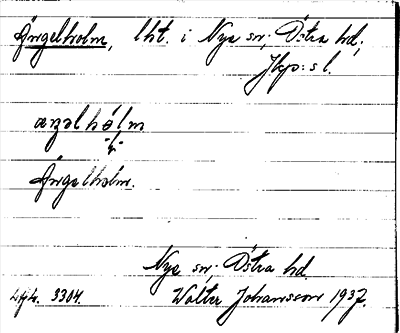 Ängelholm, lht. i Nye sn; Östra hd;
Jkp: s l.
aŋəl hólm
-l-
Ängelholm.
Nye sn; Östra hd.
3304. Walter Johansson 1937.